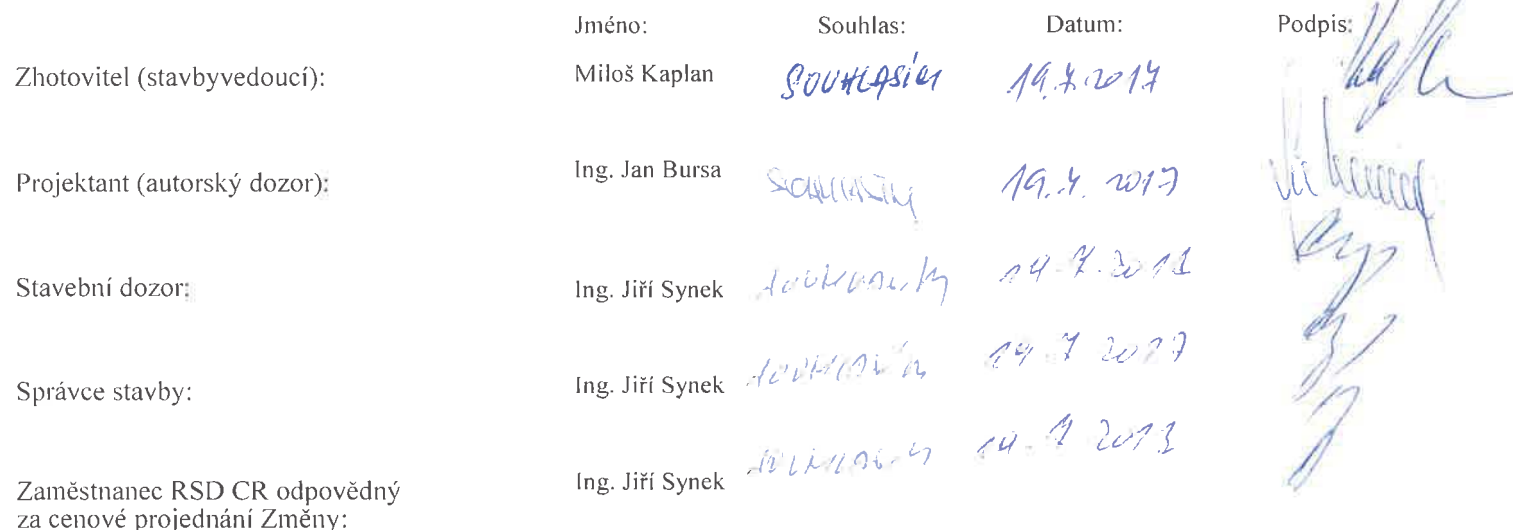 Jméno: Souhlas: Datum: Podpis:
Zhotovitel (stavbyvedoucí): Miloš Kaplan SOUHLASÍM 19.7.2017
Projektant (autorský dozor): Ing. Jan Bursa SOUHLASÍM 19.7.2017
Stavební dozor: Ing. Jiří Synek souhlasím
Správce stavby: Ing. Jiří Synek souhlasím 19 7 2017
Ing. Jiří Synek souhlasím
Zaměstnanec RSD CR odpovědný
za cenové projednání Změny: